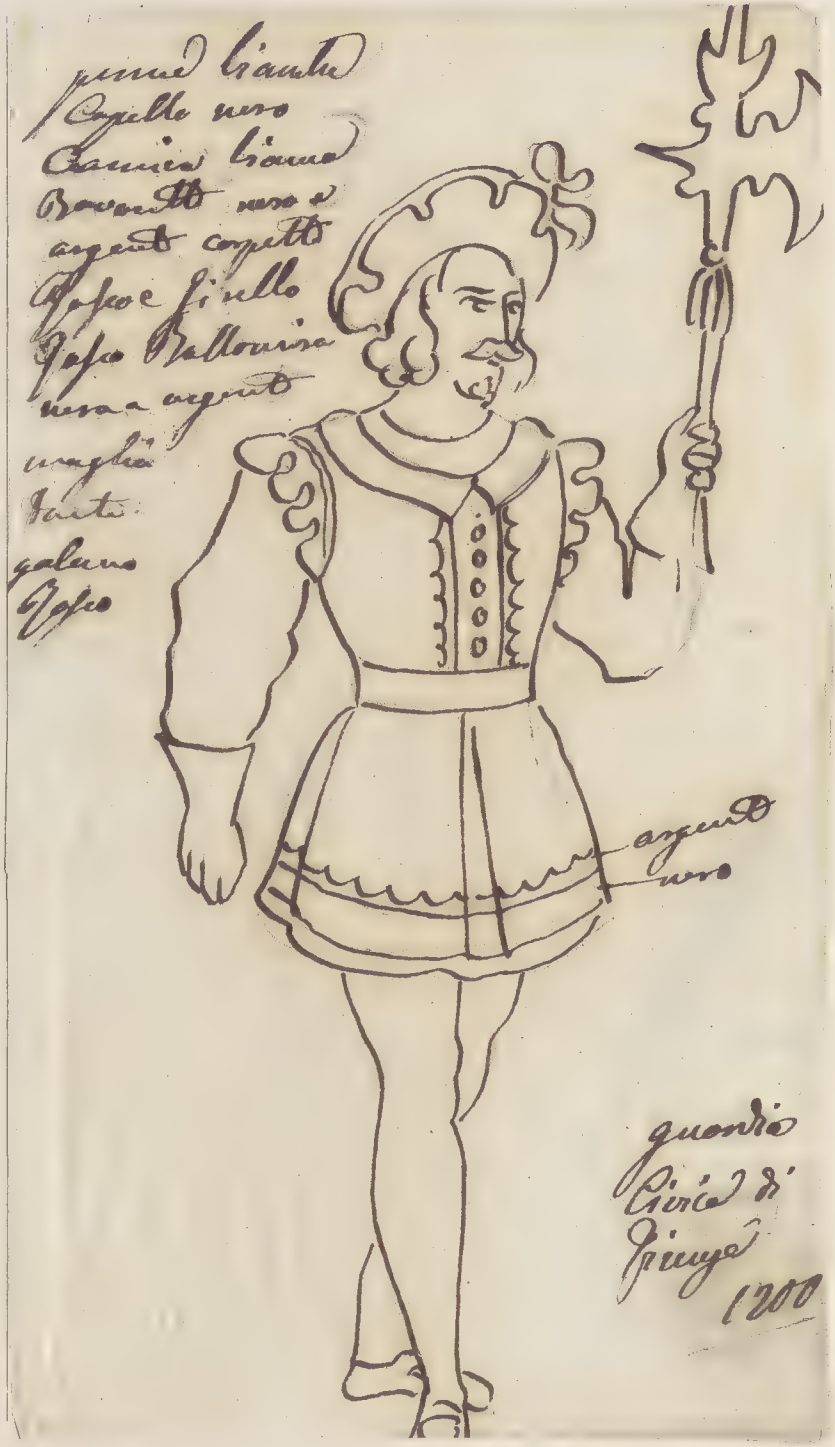 penne bianche
Capello nero
Camicia bianca
Bavarett nero e
argent corpetto
Rosso e Girello
Rosso
nera a argent
maglia
galano
Rosso
argent
nero
guardia
Civica di
1200